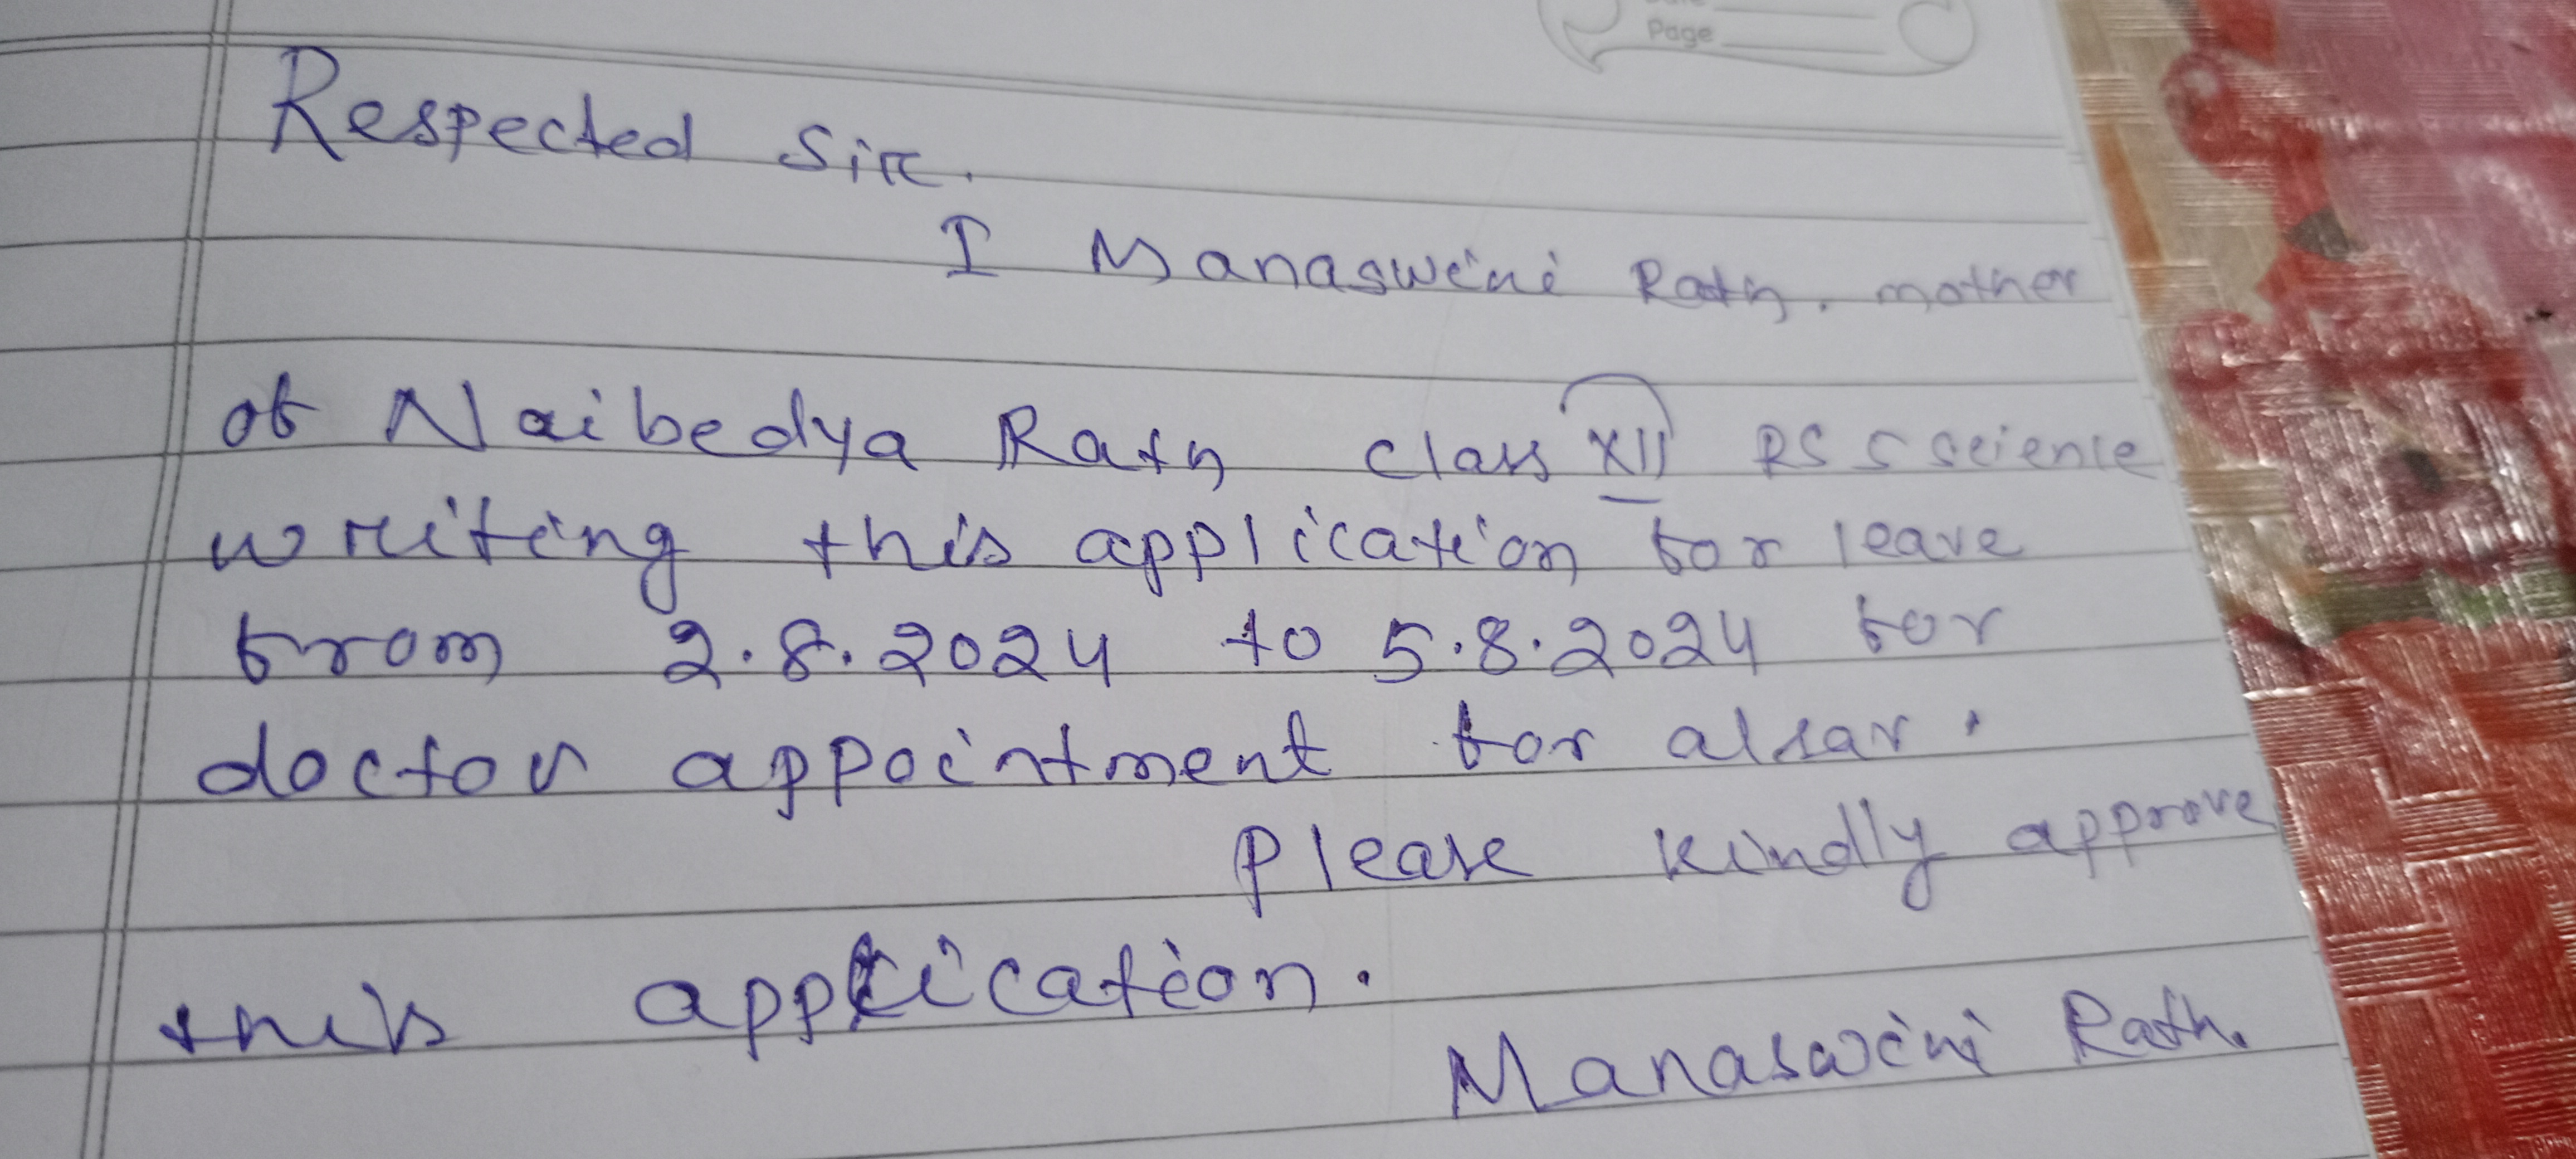 Page
Respected Sir.
I Manaswini Rath. mother
of Naibedya Rath class XII RSS science
writing this application for leave
from 2.8.2024 to 5.8.2024 for
doctor appointment for alsar.
Please kindly approve
this application.
Manaswini Rath.